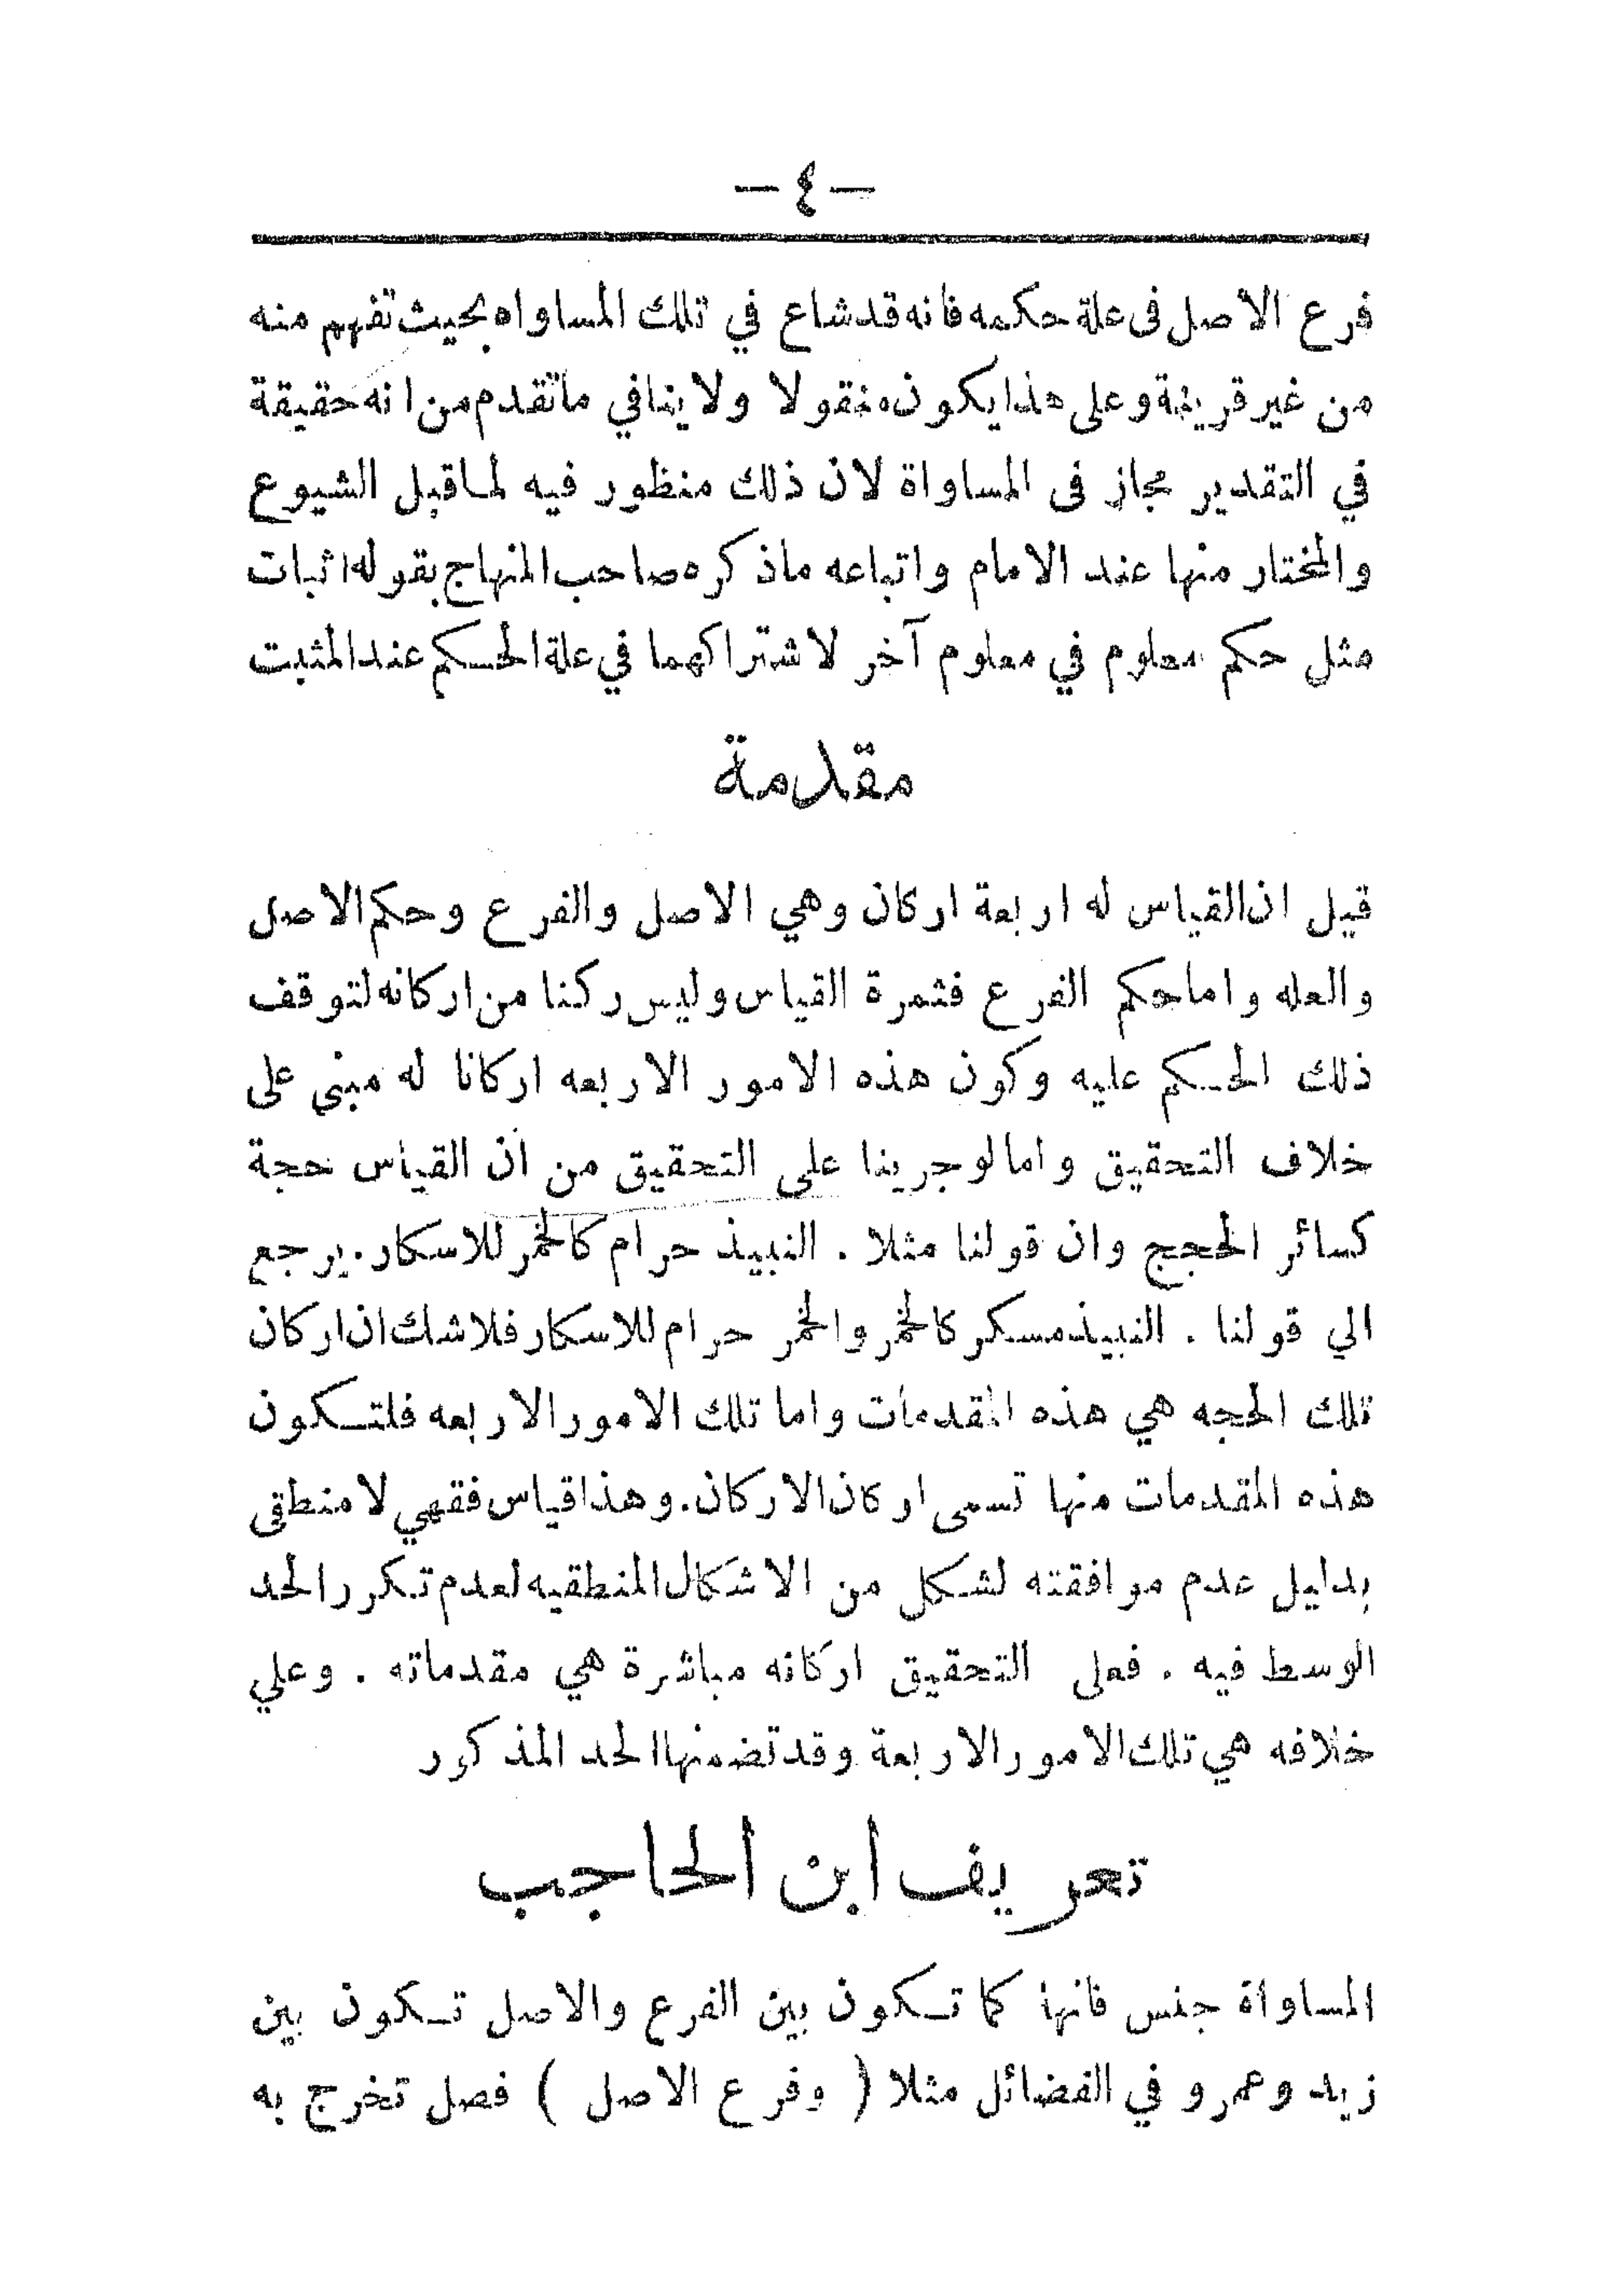 — ٤ —
فرع الاصل فى علة حكمه فانه قد شاع في تلك المساواه بحيث تفهم منه
من غير قرينة وعلى هذا يكون منقولا ولا ينافي ماتقدم من انه حقيقة
في التقدير مجاز فى المساواة لان ذلك منظور فيه لما قبل الشيوع
والمختار منها عند الامام واتباعه ماذكره صاحب المنهاج بقوله اثبات
مثل حكم معلوم في معلوم آخر لاشتراكهما في علة الحكم عند المثبت
مقدمة
قيل ان القياس له اربعة اركان وهي الاصل والفرع وحكم الاصل
والعله واما حكم الفرع فثمرة القياس وليس ركنا من اركانه لتوقف
ذلك الحكم عليه وكون هذه الامور الاربعه اركانا له مبنى على
خلاف التحقيق واما لو جرينا على التحقيق من ان القياس حجة
كسائر الحجج وان قولنا مثلا . النبيذ حرام كالخمر للاسكار . يرجع
الي قولنا . النبيذ مسكر كالخمر والخمر حرام للاسكار فلا شك ان اركان
تلك الحجه هي هذه المقدمات واما تلك الامور الاربعه فلتكون
هذه المقدمات منها تسمى اركان الاركان . وهذا قياس فقهي لا منطقى
بدليل عدم موافقته لشكل من الاشكال المنطقيه لعدم تكرر الحد
الوسط فيه . فعلى التحقيق اركانه مباشرة هي مقدماته . وعلي
خلافه هي تلك الامور الاربعة وقد تضمنها الحد المذكور
تعريف ابن الحاجب
المساواة جنس فانها كما تكون بين الفرع والاصل تكون بين
زيد وعمرو في الفضائل مثلا ( وفرع الاصل ) فصل تخرج به